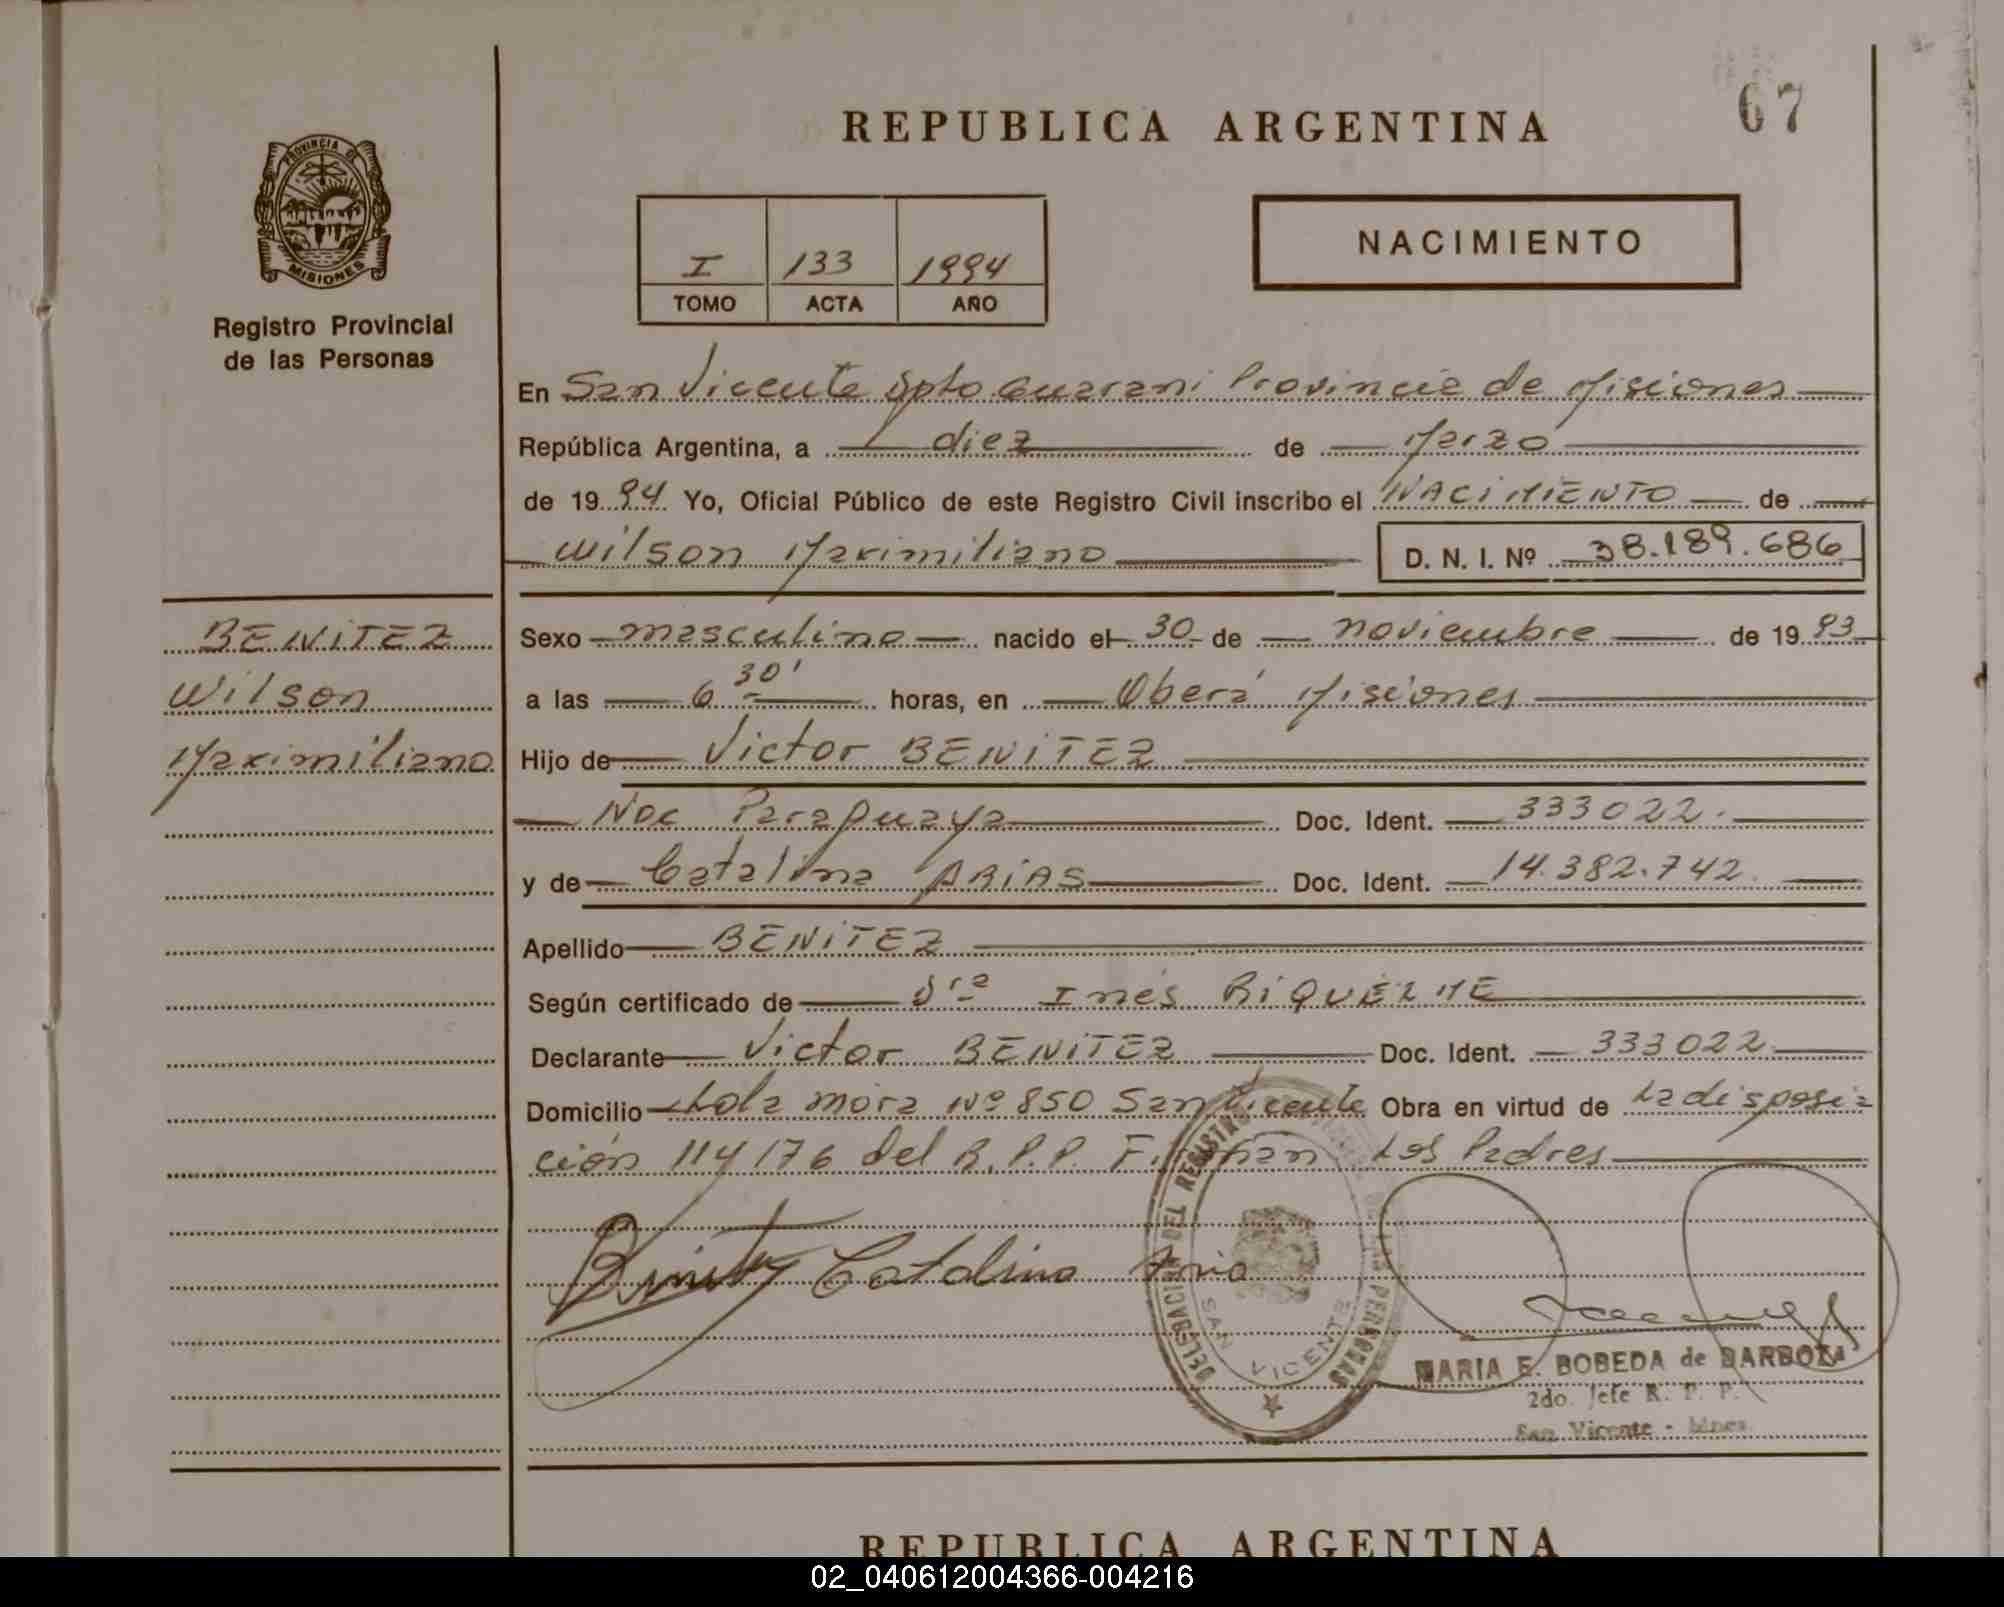 67
REPUBLICA ARGENTINA
PROVINCIA DE
MISIONES
Registro Provincial
de las Personas
I 133 1994
TOMO ACTA AÑO
NACIMIENTO
En San Vicente Dpto Guarani Provincia de Misiones
República Argentina, a diez de Marzo
de 19 94 Yo, Oficial Público de este Registro Civil inscribo el NACIMIENTO de
Wilson Maximiliano D. N. I. Nº 38.189.686
BENITEZ
Wilson
Maximiliano
Sexo masculino nacido el 30 de noviembre de 19 93
a las 6 30' horas, en Oberá Misiones
Hijo de Victor BENITEZ
Nac Paraguaya Doc. Ident. 333022.
y de Catalina ARIAS Doc. Ident. 14.382.742
Apellido BENITEZ
Según certificado de Dra Inés RIQUELME
Declarante Victor BENITEZ Doc. Ident. 333022
Domicilio Lola mora Nº 850 San Vicente Obra en virtud de La disposi
ción 114/76 del R.P.P. Firman Los Padres
Benitez Catalina Aria
DELEGACION DEL REGISTRO DE LAS PERSONAS
SAN VICENTE
MARIA E. BOBEDA de BARBOZA
2do. Jefe R. P. P.
San Vicente - Mnes.
REPUBLICA ARGENTINA
02_040612004366-004216